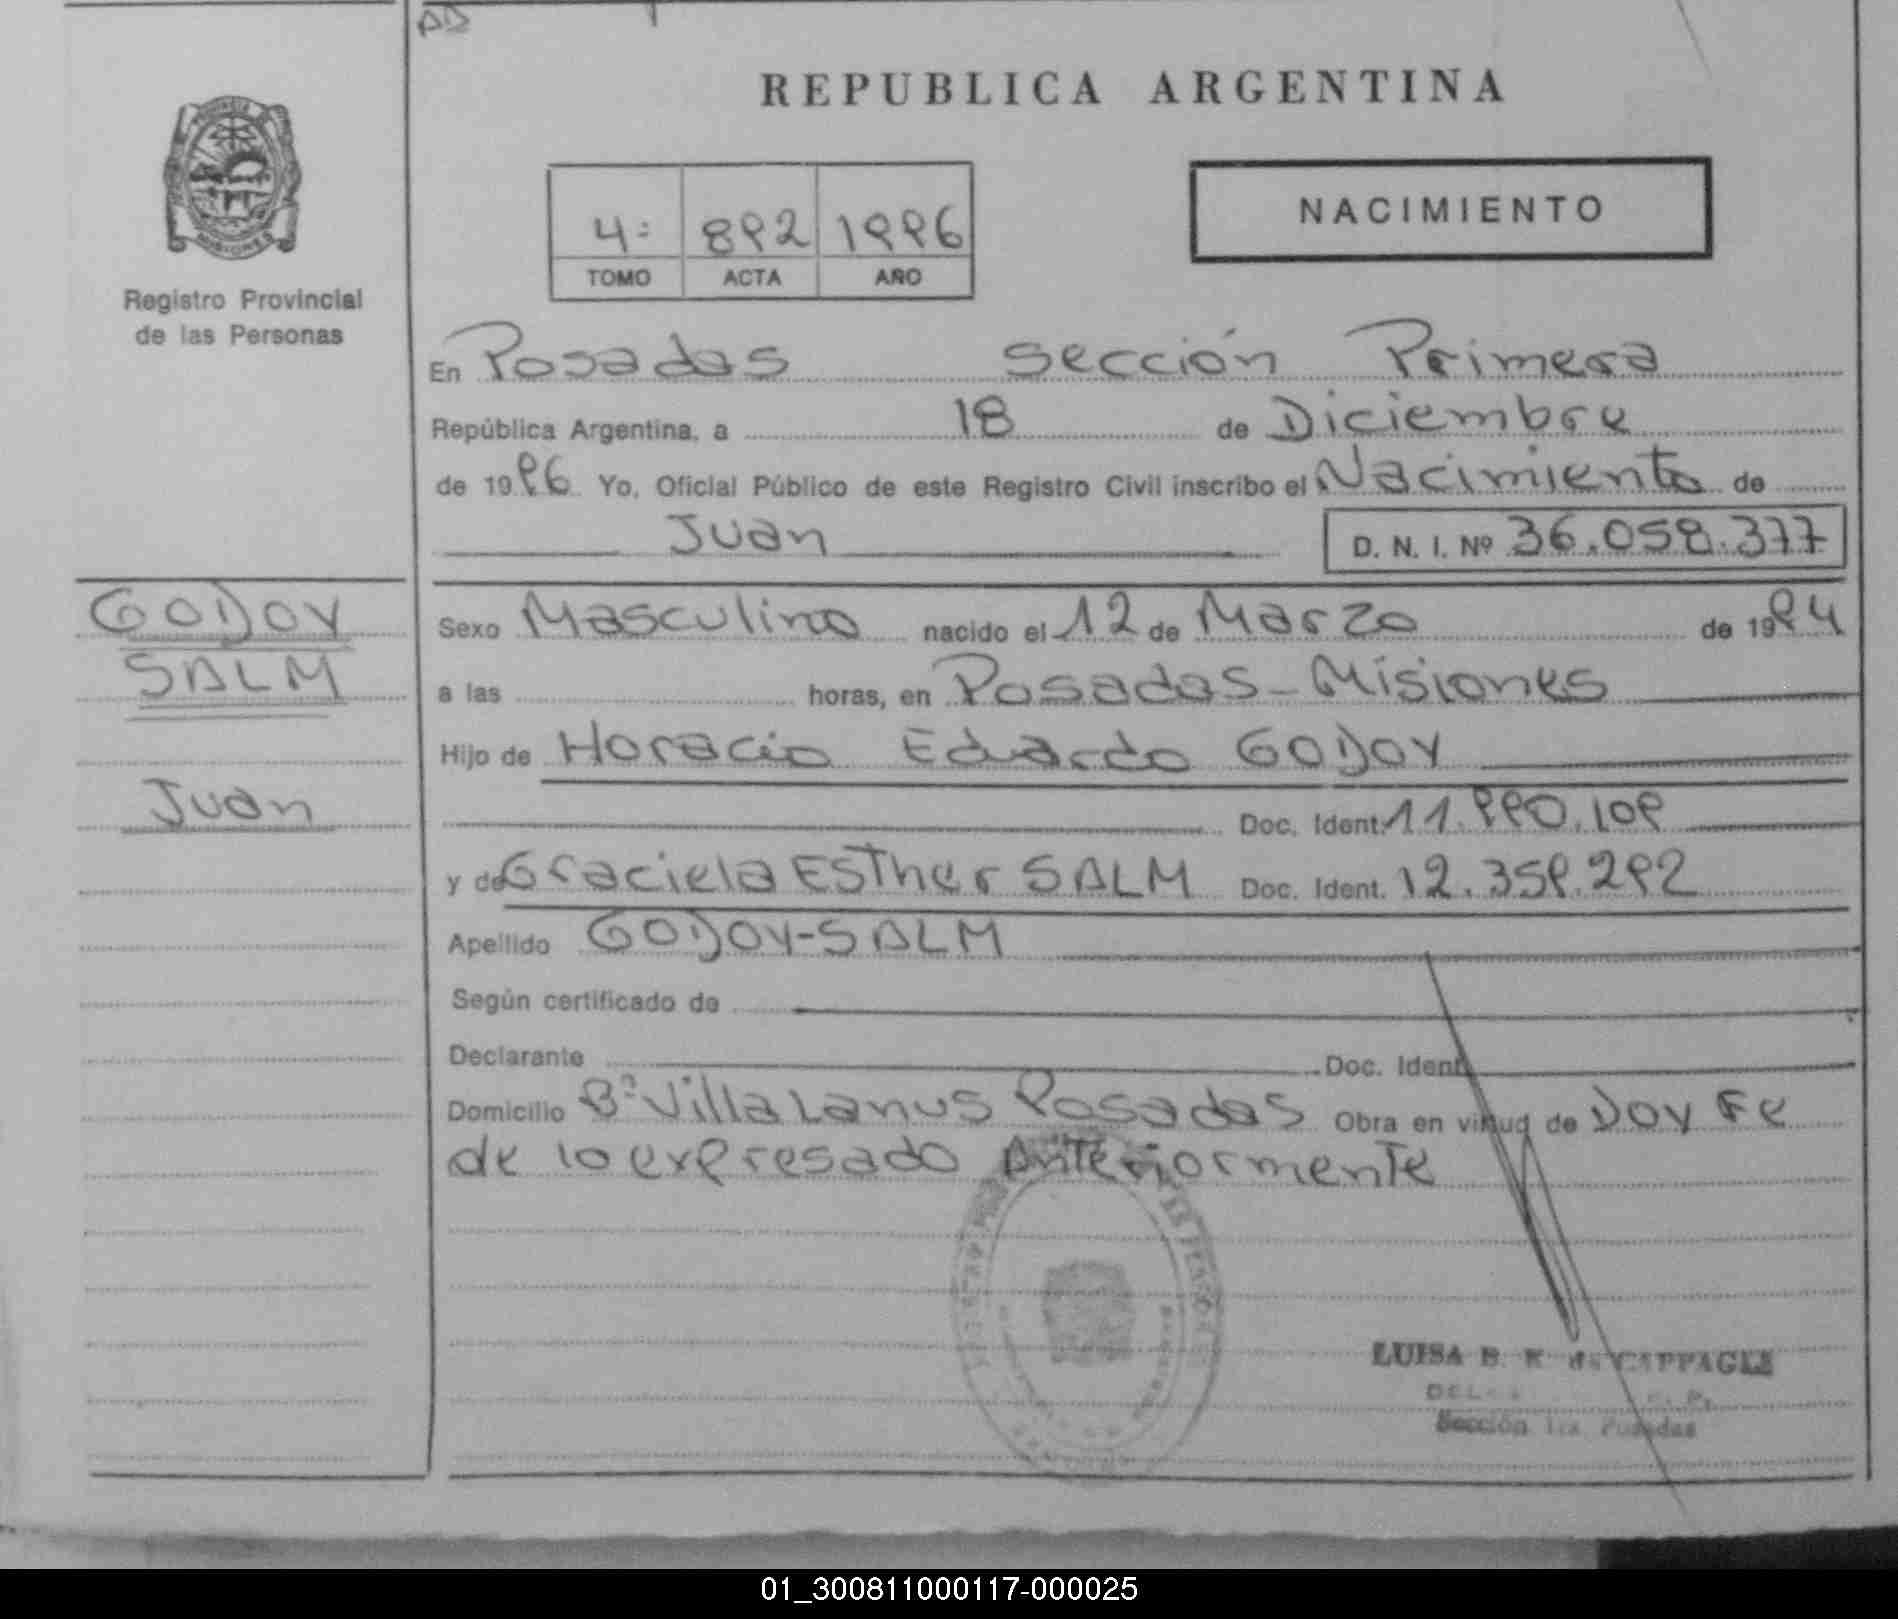 AD
REPUBLICA ARGENTINA
NACIMIENTO
4: 892 1996
TOMO ACTA AÑO
Registro Provincial
de las Personas
En Posadas Sección Primera
República Argentina, a 18 de Diciembre
de 1996 Yo, Oficial Público de este Registro Civil inscribo el Nacimiento de
Juan D. N. I. Nº 36.058.377
GODOY
SALM
Juan
Sexo Masculino nacido el 12 de Marzo de 1994
a las horas, en Posadas - Misiones
Hijo de Horacio Eduardo GODOY
Doc. Ident. 11.990.109
y de Graciela Esther SALM Doc. Ident. 12.359.292
Apellido GODOY-SALM
Según certificado de
Declarante Doc. Ident.
Domicilio Bº Villa Lanus Posadas Obra en virtud de Doy Fe
de lo expresado Anteriormente
LUISA B. K. de CAPPAGLI
Sección 1ra Posadas
01_300811000117-000025